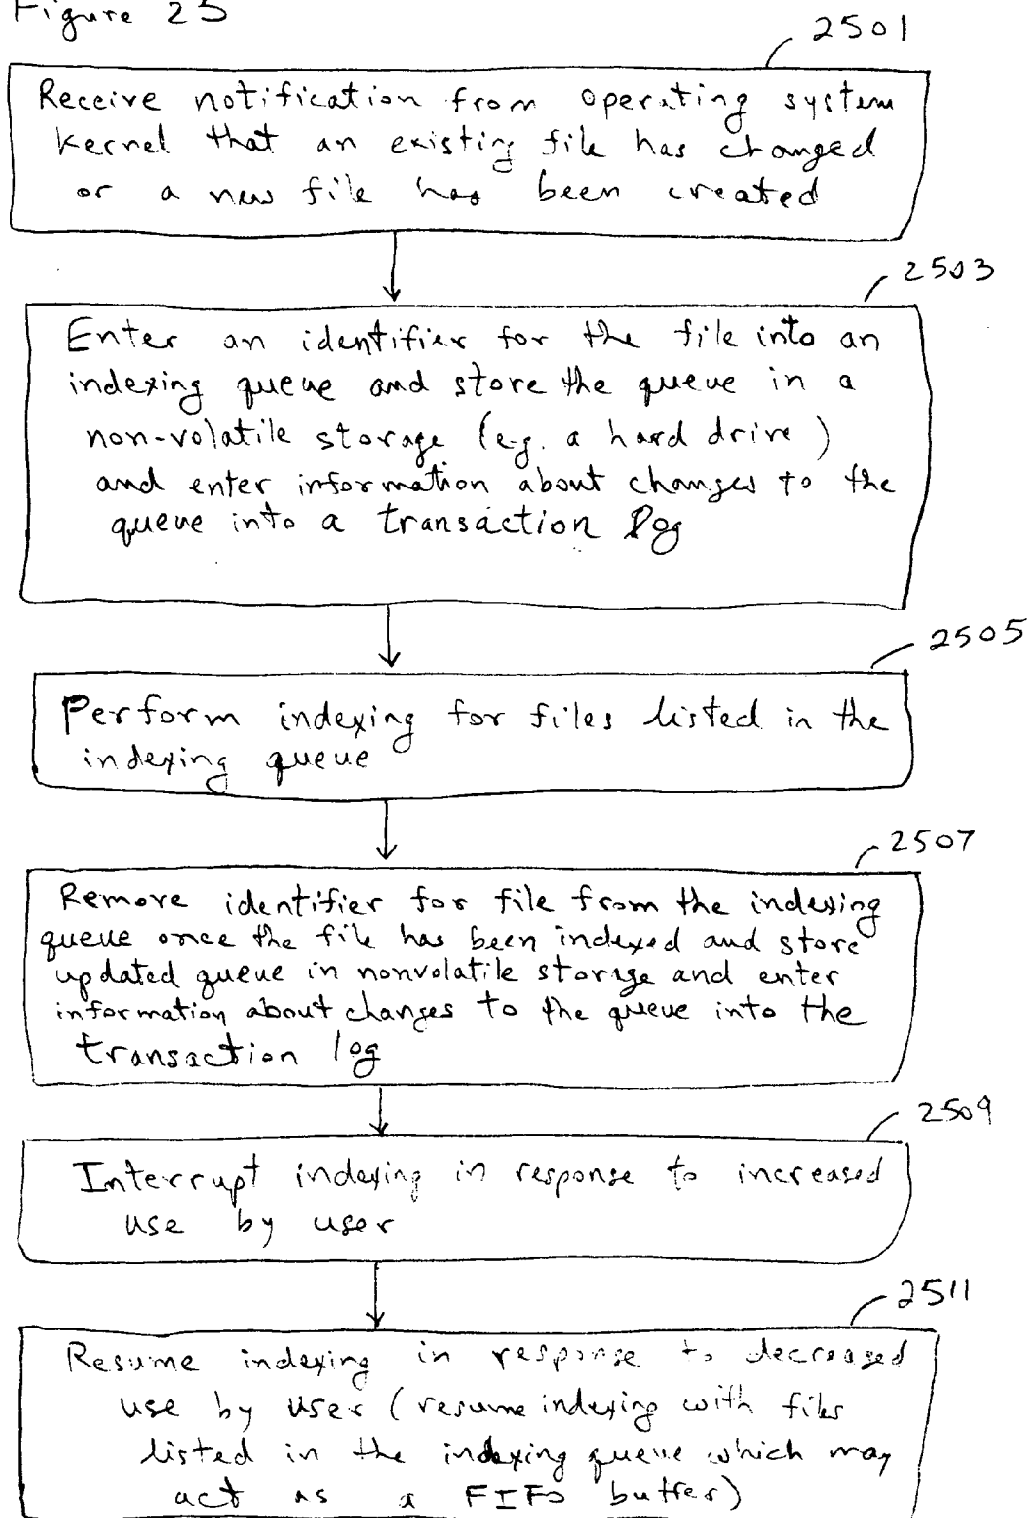 Figure 25
2501
Receive notification from operating system
kernel that an existing file has changed
or a new file has been created
2503
Enter an identifier for the file into an
indexing queue and store the queue in a
non-volatile storage (e.g. a hard drive)
and enter information about changes to the
queue into a transaction log
2505
Perform indexing for files listed in the
indexing queue
2507
Remove identifier for file from the indexing
queue once the file has been indexed and store
updated queue in nonvolatile storage and enter
information about changes to the queue into the
transaction log
2509
Interrupt indexing in response to increased
use by user
2511
Resume indexing in response to decreased
use by user (resume indexing with files
listed in the indexing queue which may
act as a FIFO buffer)